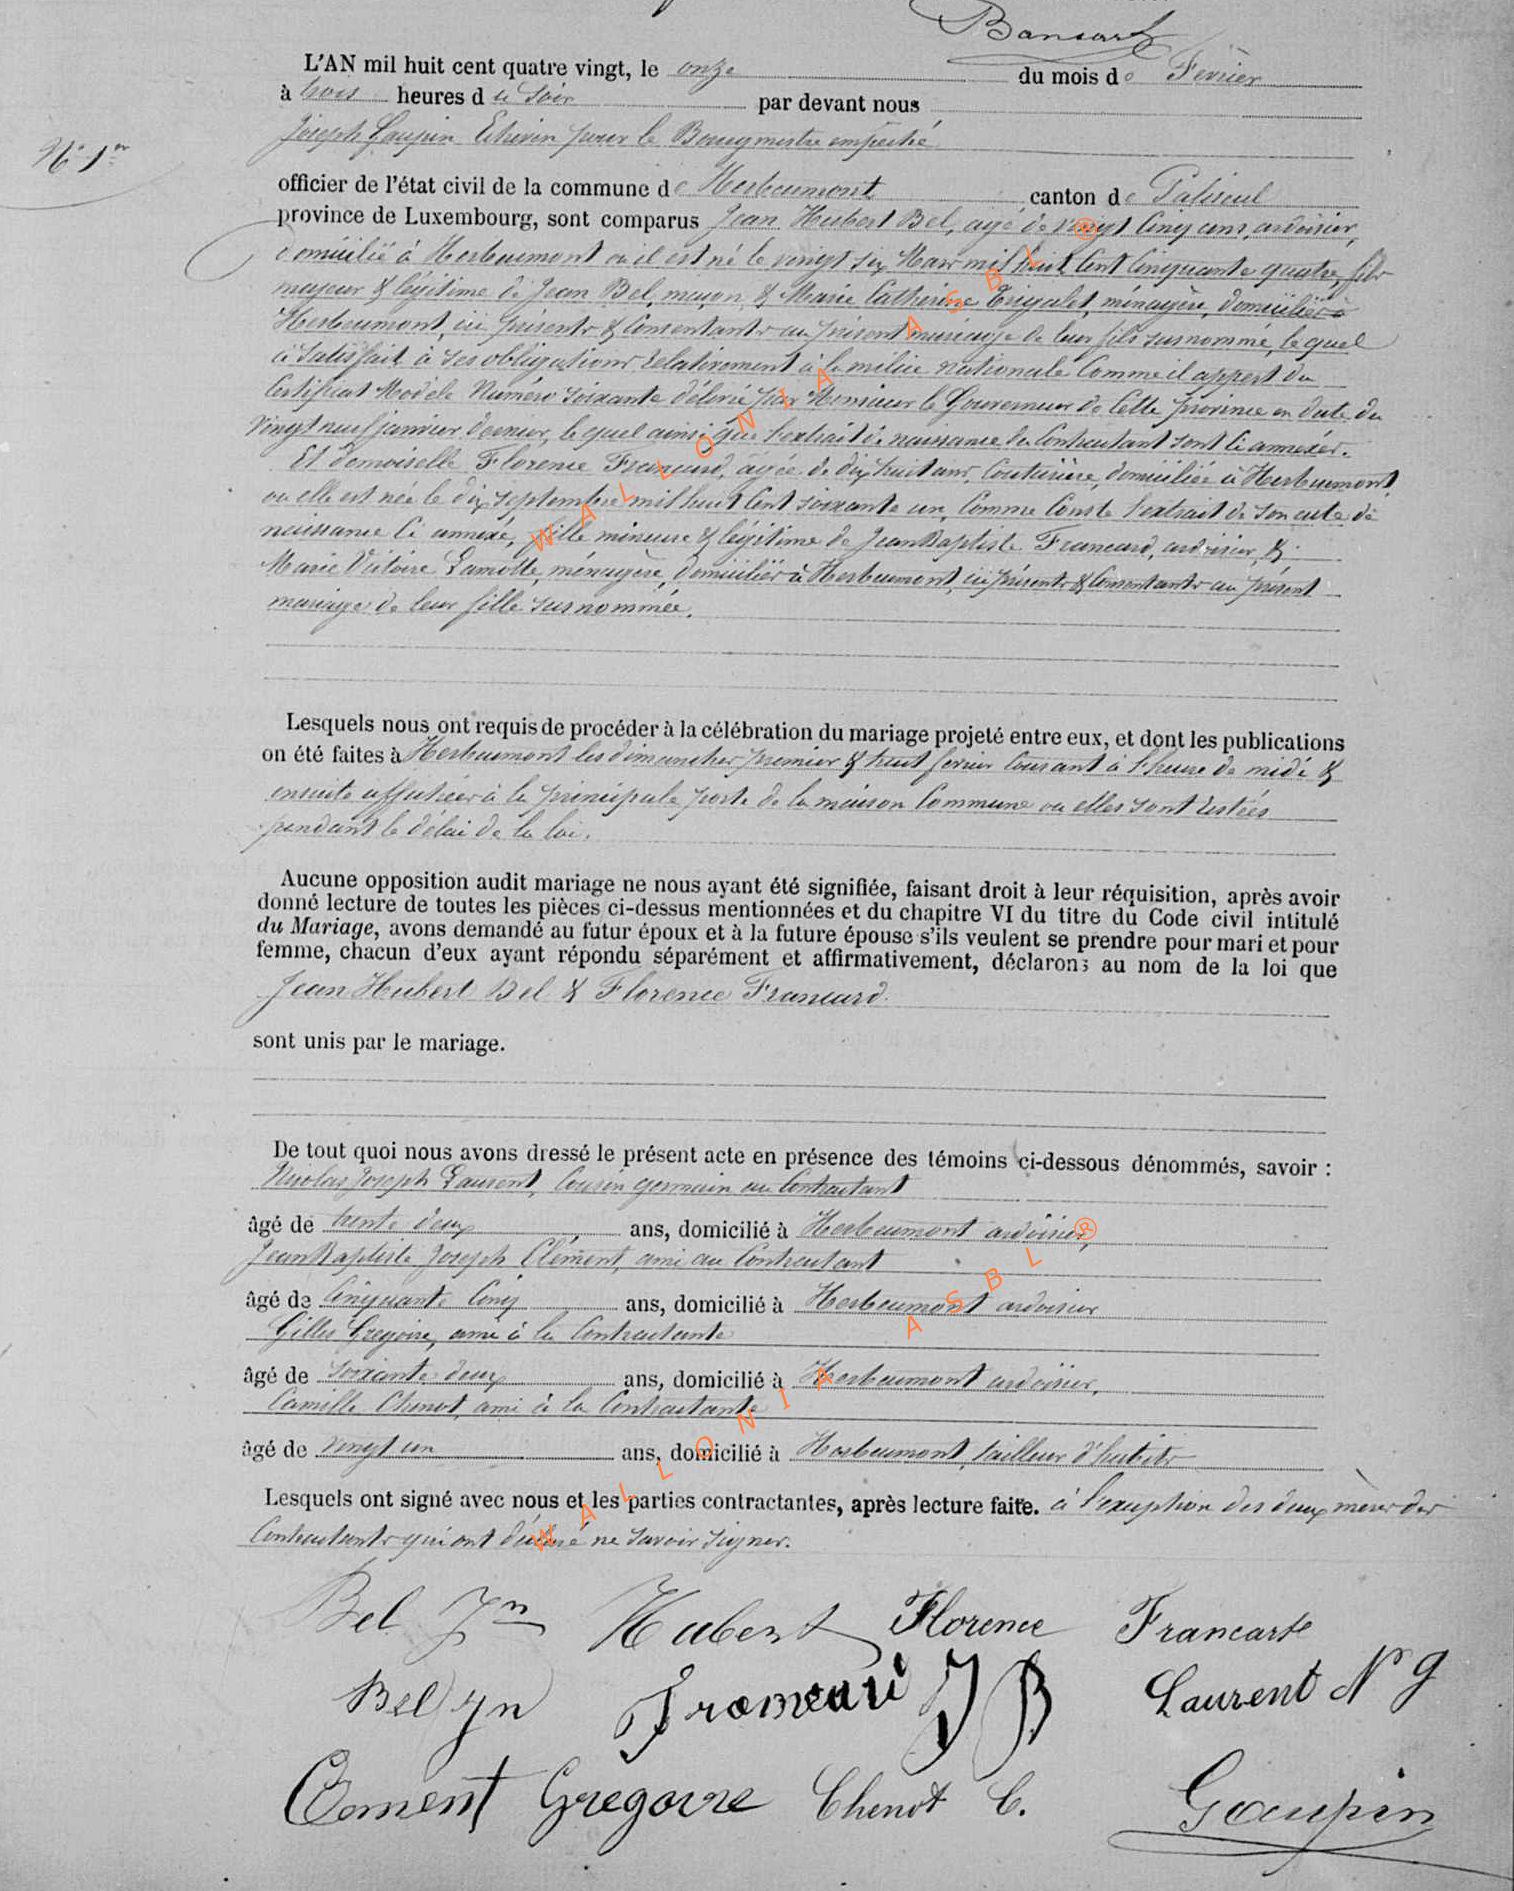 Bansart
L'AN mil huit cent quatre vingt, le onze du mois de Fevrier
à trois heures du Soir par devant nous
Joseph Goupin Echevin pour le Bourgmestre empêché
N° 1er
officier de l'état civil de la commune de Herbeumont canton de Paliseul
province de Luxembourg, sont comparus Jean Hubert Bel, agé de vingt Cinq ans, ardoisier,
domicilié à Herbeumont ou il est né le vingt six Mars mil huit Cent Cinquante quatre, fils
majeur & légitime de Jean Bel, maçon & Marie Catherine Trigalet, ménagère, domiciliés à
Herbeumont, ici présents & Consentants au présent mariage de leur fils susnommé, lequel
à Satisfait à ses obligations relativement à la milice nationale Comme il appert du
Certificat Modèle Numéro soixante délivré par Monsieur le Gouverneur de Cette province en date du
vingt neuf janvier dernier, le quel ainsi que l'extrait de naissance du Contractant sont ci annexés.
Et demoiselle Florence Francard, agée de dix huit ans, Couturière, domiciliée à Herbeumont,
ou elle est née le dix septembre mil huit Cent soixante un, Comme Conste l'extrait de son acte de
naissance Ci annexé, fille mineure & légitime de Jean Baptiste Francard, ardoisier, &
Marie Victoire Lamotte, ménagère, domiciliés à Herbeumont, ici présents & Consentants au présent
mariage de leur fille susnommée.
Lesquels nous ont requis de procéder à la célébration du mariage projeté entre eux, et dont les publications
on été faites à Herbeumont les dimanches premier & huit fevrier Courant à l'heure de midi &
ensuite affichées à la principale porte de la maison Commune ou elles sont restées
pendant le délai de la loi.
Aucune opposition audit mariage ne nous ayant été signifiée, faisant droit à leur réquisition, après avoir
donné lecture de toutes les pièces ci-dessus mentionnées et du chapitre VI du titre du Code civil intitulé
du Mariage, avons demandé au futur époux et à la future épouse s'ils veulent se prendre pour mari et pour
femme, chacun d'eux ayant répondu séparément et affirmativement, déclarons au nom de la loi que
Jean Hubert Bel & Florence Francard.
sont unis par le mariage.
De tout quoi nous avons dressé le présent acte en présence des témoins ci-dessous dénommés, savoir :
Nicolas Joseph Laurent, Cousin germain au Contractant
âgé de trente deux ans, domicilié à Herbeumont ardoisier,
Jean Baptiste Joseph Clément, ami au Contractant
âgé de Cinquante Cinq ans, domicilié à Herbeumont ardoisier
Gilles Gregoire, ami à la Contractante
âgé de soixante deux ans, domicilié à Herbeumont ardoisier,
Camille Chenot, ami à la Contractante
âgé de vingt un ans, domicilié à Herbeumont, tailleur d'habits
Lesquels ont signé avec nous et les parties contractantes, après lecture faite. à l'exception des deux mères des
Contractants qui ont déclaré ne savoir signer.
Bel Jn Hubert Florence Francart
Bel Jn Francard J B Laurent N J
Clement Gregoire Chenot C. Goupin
WALLONIA ASBL ®
WALLONIA ASBL ®